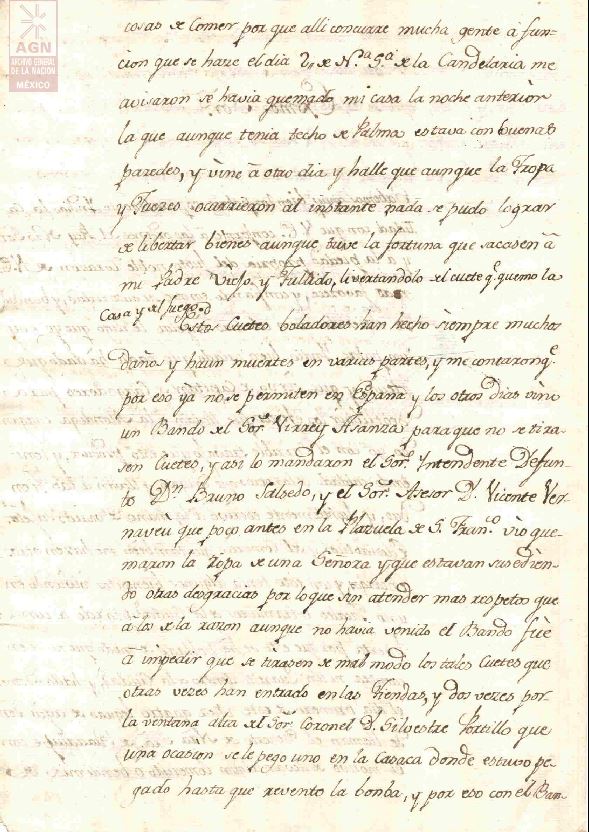 AGN
ARCHIVO GENERAL
DE LA NACION
MÉXICO
cosas de comer por que alli concurre mucha gente á fun=
cion que se haze el dia 2,, de N.ª S.ª de la Candelaria me
avisaron se havia quemado mi casa la noche anterior
la que aunque tenia techo de Palma estava con buenas
paredes, y vine â otro dia y halle que aunque la Tropa
y Juezes ocurrieron al instante nada se pudo lograr
de libertar bienes aunque tuve la fortuna que sacasen â
mi Padre Viejo y Tullido, livertandolo del cuete q.e quemo la
Casa y del fuego
Estos Cuetes boladores han hecho siempre muchos
daños y haun muertes en varias partes, y me contaron q.e
por eso ya no se permiten en España y los otros dias vino
un Bando del Sor. Virrey Asanza para que no se tira-
sen Cuetes, y asi lo mandaron el Sor. Intendente Defun-
to Dn. Bruno Salsedo, y el Sor. Asesor D. Vicente Ver
naveu que poco antes en la Plazuela de S. Fran.co vio que-
maron la ropa de una Señora y que estavan susedien-
do otras desgracias por lo que sin atender mas respetos que
a los de la razon aunque no havia venido el Bando fue
â impedir que se tirasen de mal modo los tales Cuetes que
otras vezes han entrado en las Tiendas, y dos vezes por
la ventana alta del Sor. Coronel D. Silvestre Portillo que
una ocasion se le pego uno en la Casaca donde estuvo pe-
gado hasta que revento la bonba, y por eso con el Ban-